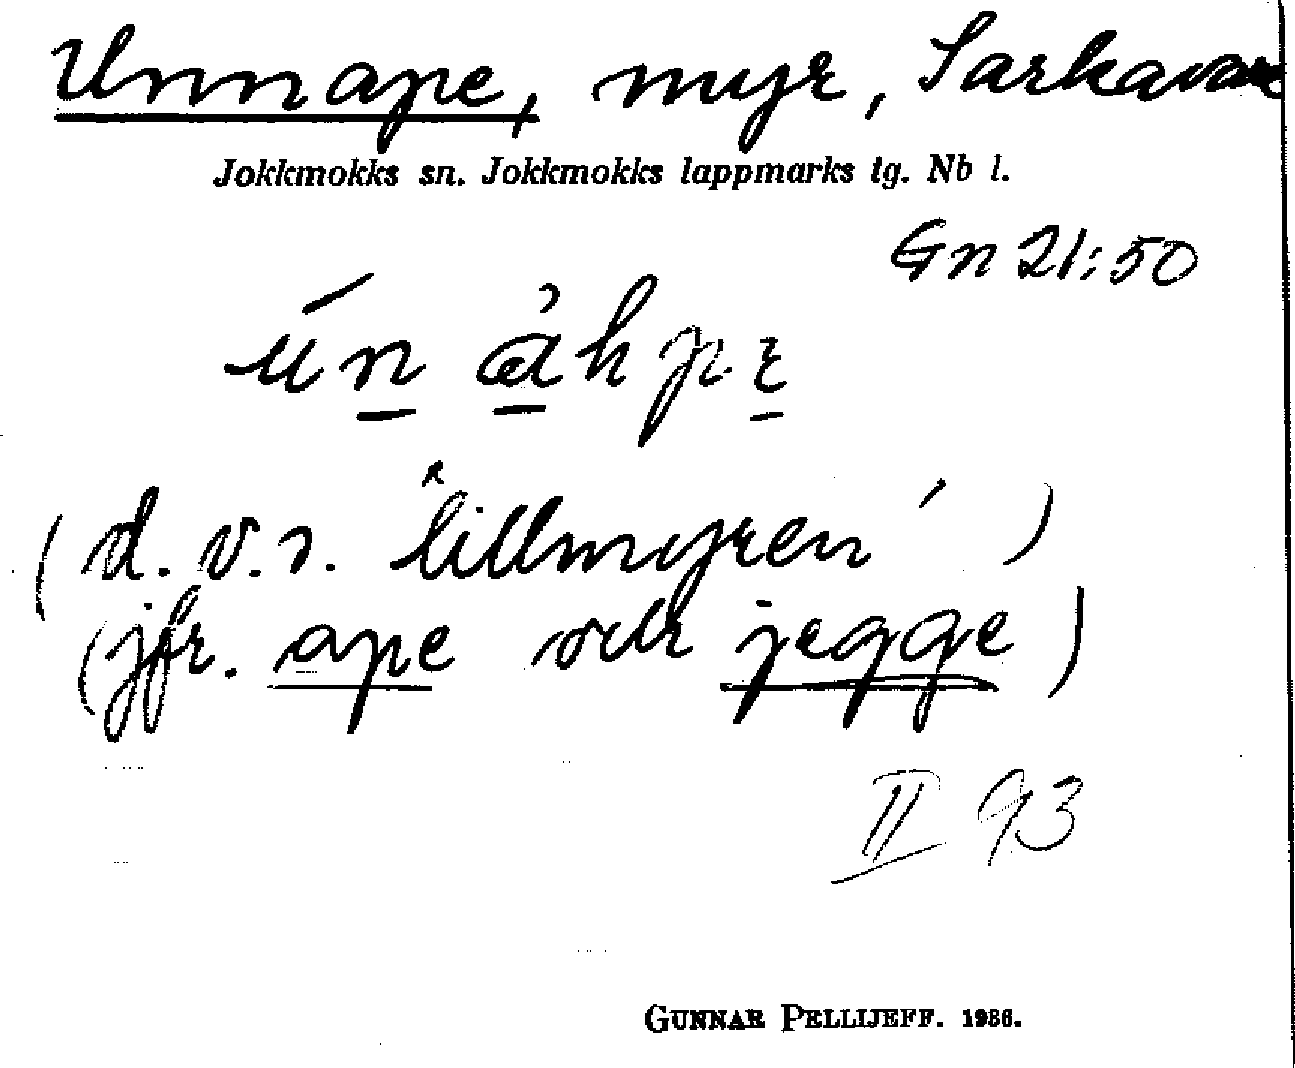 Unnape, myr, Sarkavare
Jokkmokks sn. Jokkmokks lappmarks tg. Nb l.
Gn 21:50
(d.v.s. "lillmyren")
(jfr. ape och jegge)
II 93
GUNNAR PELLIJEFF. 1936.